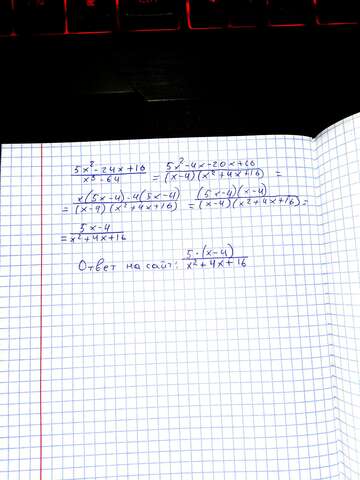 (5x² - 24x + 16)/(x³ - 64) = (5x² - 4x - 20x + 16)/((x-4)(x² + 4x + 16)) =
= (x(5x-4) - 4(5x-4))/((x-4)(x² + 4x + 16)) = ((5x-4)(x-4))/((x-4)(x² + 4x + 16)) =
= (5x-4)/(x² + 4x + 16)
Ответ на сайт: (5·(x-4))/(x² + 4x + 16)